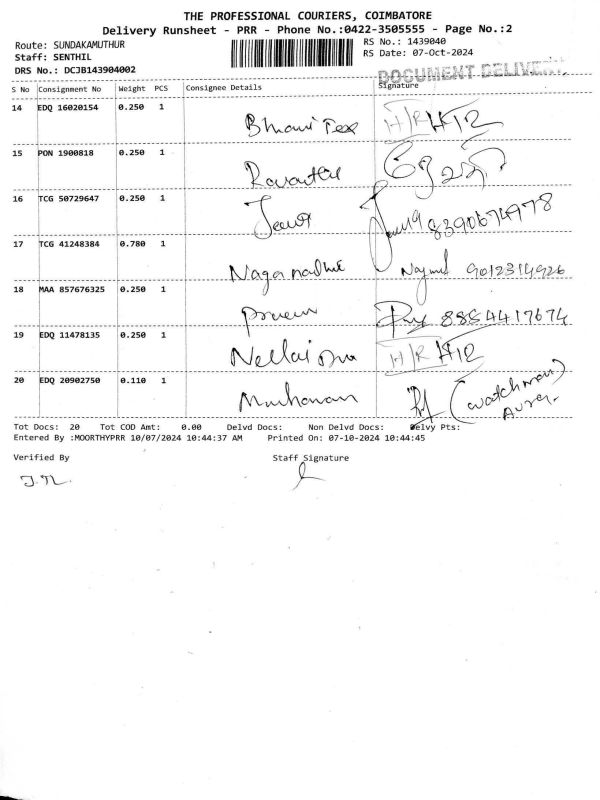 THE PROFESSIONAL COURIERS, COIMBATORE
Delivery Runsheet - PRR - Phone No.:0422-3505555 - Page No.:2
Route: SUNDAKAMUTHUR
RS No.: 1439040
Staff: SENTHIL
RS Date: 07-Oct-2024
DRS No.: DCJB143904002
DOCUMENT DELIVERY
S No Consignment No Weight PCS Consignee Details Signature
14 EDQ 16020154 0.250 1 H/R H/R
15 PON 1900818 0.250 1
16 TCG 50729647 0.250 1 8390674978
17 TCG 41248384 0.780 1 9012314926
18 MAA 857676325 0.250 1 8854417674
19 EDQ 11478135 0.250 1 Nellai H/R H/R
20 EDQ 20902750 0.110 1 (watchman)
Tot Docs: 20 Tot COD Amt: 0.00 Delvd Docs: Non Delvd Docs: Delvy Pts:
Entered By :MOORTHYPRR 10/07/2024 10:44:37 AM Printed On: 07-10-2024 10:44:45
Verified By Staff Signature